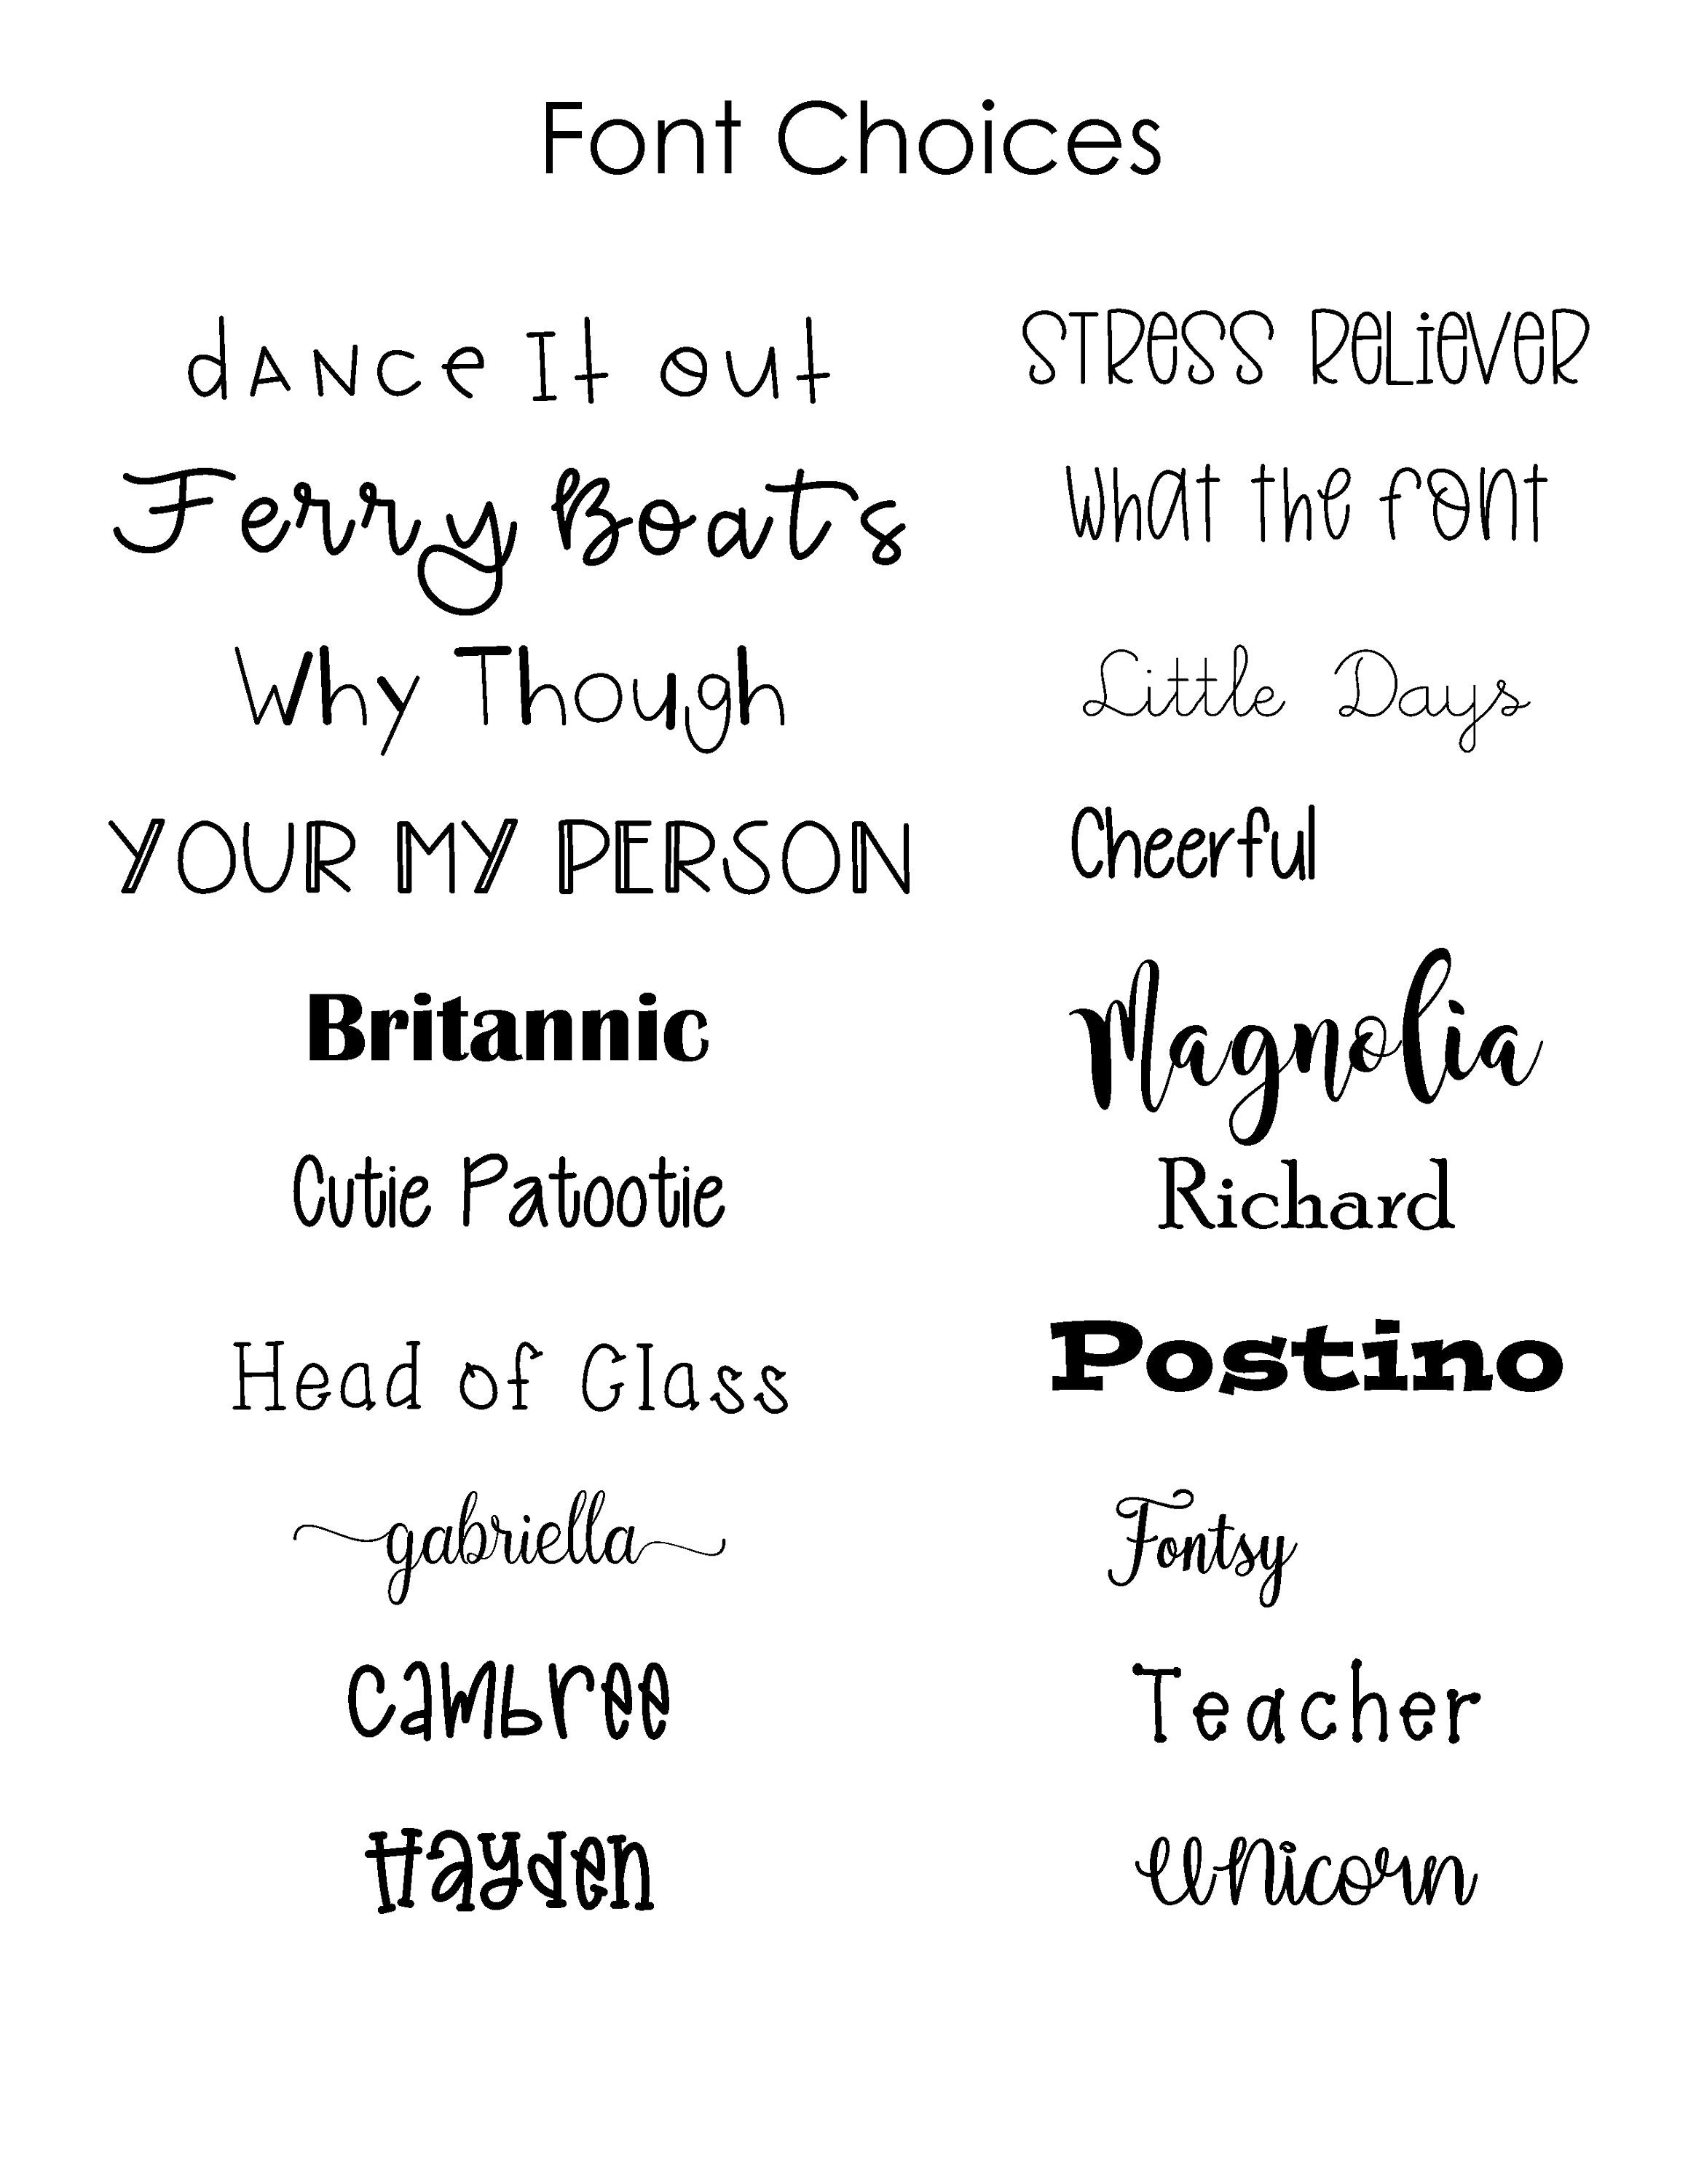 Font Choices
dANce It out
STReSS ReLieVeR
Ferry Boats
what the font
Why Though
Little Days
YOUR MY PERSON
Cheerful
Britannic
Magnolia
Cutie Patootie
Richard
Head of Class
Postino
gabriella
Fontsy
Cambree
Teacher
Hayden
Unicorn